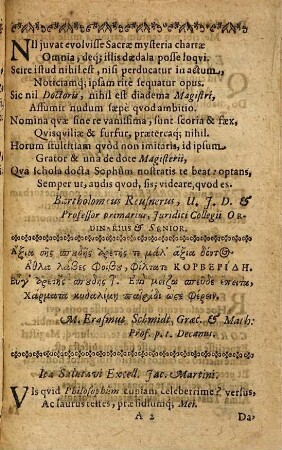 Nil juvat evolvisse Sacræ mysteria chartæ
Omnia, deq; istis dædala posse loqui.
Scire istud nihil est, nisi perducatur in actum
Notitiamq; ipsam rite sequatur opus.
Sic nil Doctoris, nihil est diadema Magistri,
Assumit nudum sæpe quod ambitio.
Nomina quæ sine re vanissima, sunt scoria & fæx,
Quisquiliæ & furfur, prætereaq; nihil.
Horum stultitiam quod non imitaris, id ipsum
Grator & una de dote Magisterii,
Quâ Schola docta Sophûm nostratis te beat: optans,
Semper ut, audis quod, sis; videare, quod es.
Bartholomæus Reusnerus, U. J. D. &
Professor primarius, Juridici Collegii OR-
DINARIUS & SENIOR.
Ἄξια τῆς σπουδῆς ἀρετῆς τε μάλ' ἄξια
Ἆθλα λάβες Φοίβου, Φίλτατε ΚΟΡΒΕΡΙΔΗ.
Εὖγ' ἀρετῆς σπουδῆς τ'. Ἐπὶ μείζω σπεῦδε ἔπειτα,
Χάρματα κυδαλίμη πατρίδι ὡς φέρειν.
M. Erasmus Schmidt, Græc. & Math:
Prof. p. t. Decanus.
Ita Salutavi Excell. Jac. Martini.
Vis quid Philosophûm cupiam celeberrime? versus,
Ac saurus testes, præludiumq; Mel.
A 2 Da-